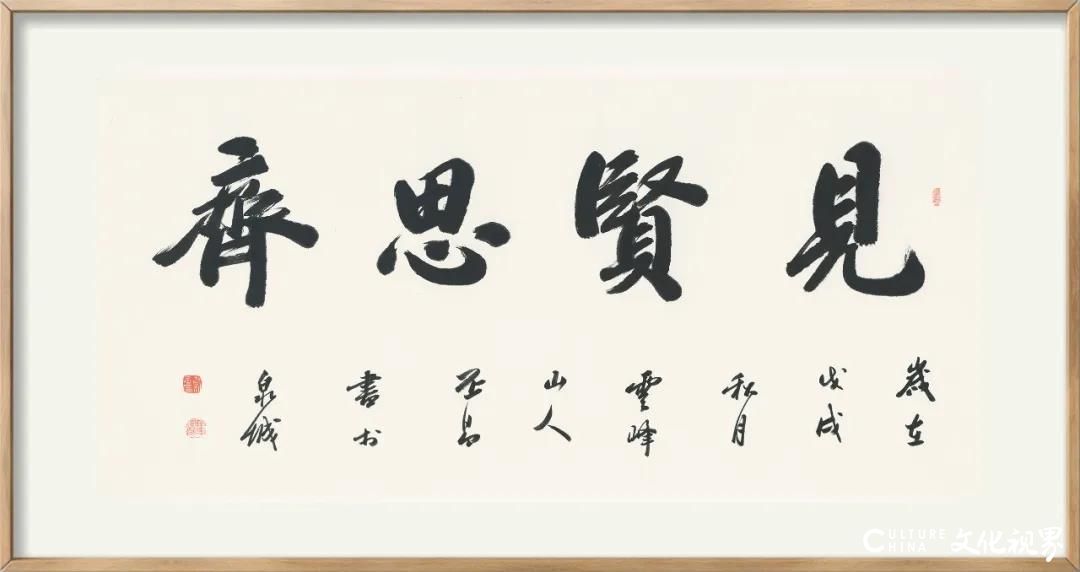 見賢思齊
歲在
戊戌
秋月
雲峰
山人
書於
泉城
CULTURE
CHINA 文化视界